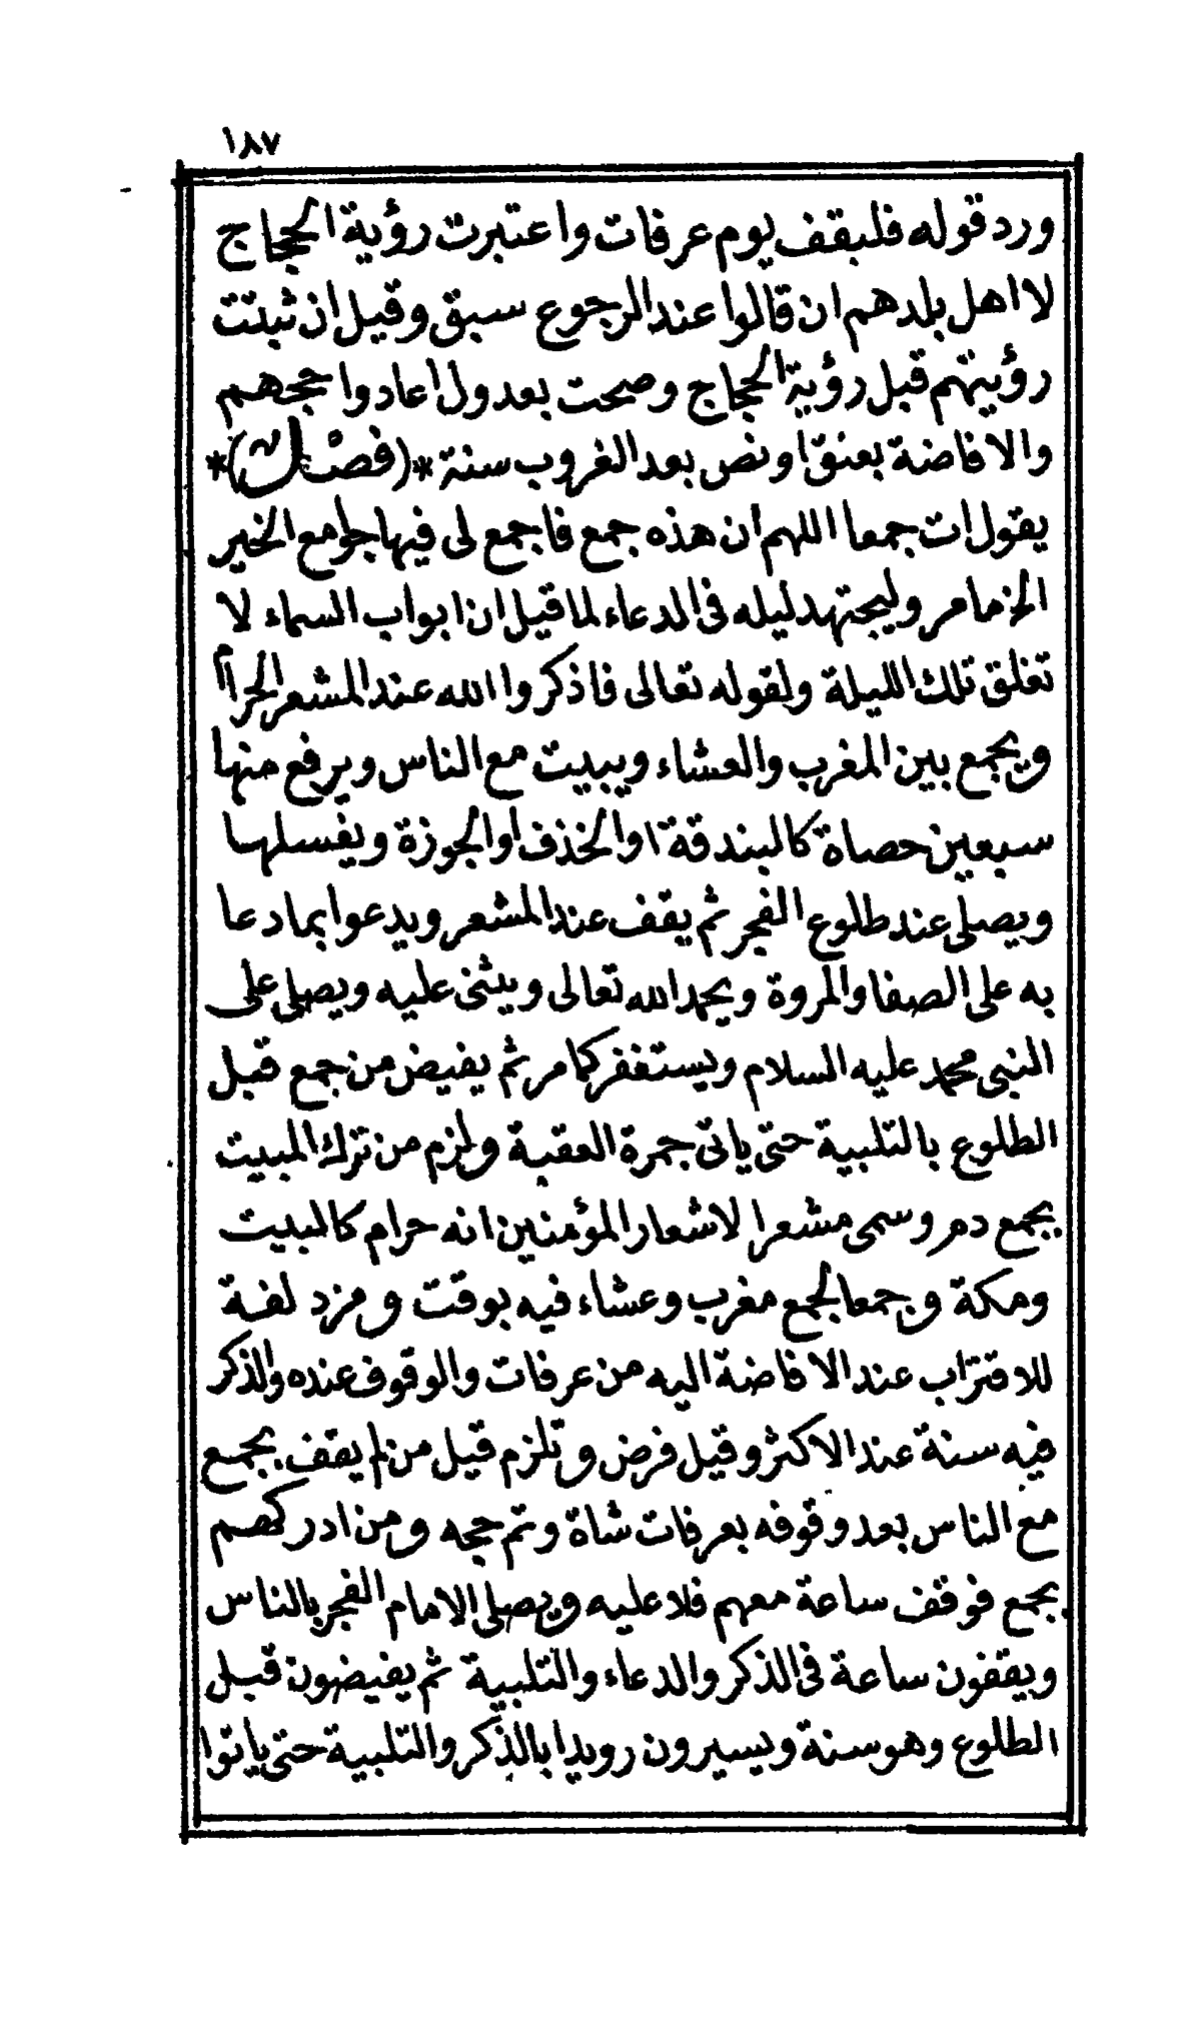 ١٨٧
ورد قوله فليقف يوم عرفات واعتبرت رؤية الحجاج
لا اهل بلدهم ان قالوا عند الرجوع سبق وقيل ان ثبتت
رؤيتهم قبل رؤية الحجاج وصحت بعدول اعادوا حجهم
والافاضة بعنق او نص بعد الغروب سنة *(فصل)*
يقول ات جمعا اللهم ان هذه جمع فاجمع لى فيها جوامع الخير
الخ مامر وليجتهد ليله فى الدعاء لما قيل ان ابواب السماء لا
تغلق تلك الليلة ولقوله تعالى فاذكروا الله عند المشعر الحرام
ويجمع بين المغرب والعشاء ويبيت مع الناس ويرفع منها
سبعين حصاة كالبندقة او الخذف او الجوزة ويغسلها
ويصلى عند طلوع الفجر ثم يقف عند المشعر ويدعوا بما دعا
به على الصفا والمروة ويحمد الله تعالى ويثنى عليه ويصلى على
النبى محمد عليه السلام ويستغفر كما مر ثم يفيض من جمع قبل
الطلوع بالتلبية حتى ياتى جمرة العقبة ولزم من ترك المبيت
بجمع دم وسمى مشعرا لاشعار المؤمنين انه حرام كالبيت
ومكة وجمعا لجمع مغرب وعشاء فيه بوقت ومزد لفة
للاقتراب عند الافاضة اليه من عرفات والوقوف عنده والذكر
فيه سنة عند الاكثر وقيل فرض وتلزم قيل من لم يقف بجمع
مع الناس بعد وقوفه بعرفات شاة وتم حجه ومن ادركهم
بجمع فوقف ساعة معهم فلا عليه ويصلى الامام الفجر بالناس
ويقفون ساعة فى الذكر والدعاء والتلبية ثم يفيضون قبل
الطلوع وهو سنة ويسيرون رويدا بالذكر والتلبية حتى ياتوا